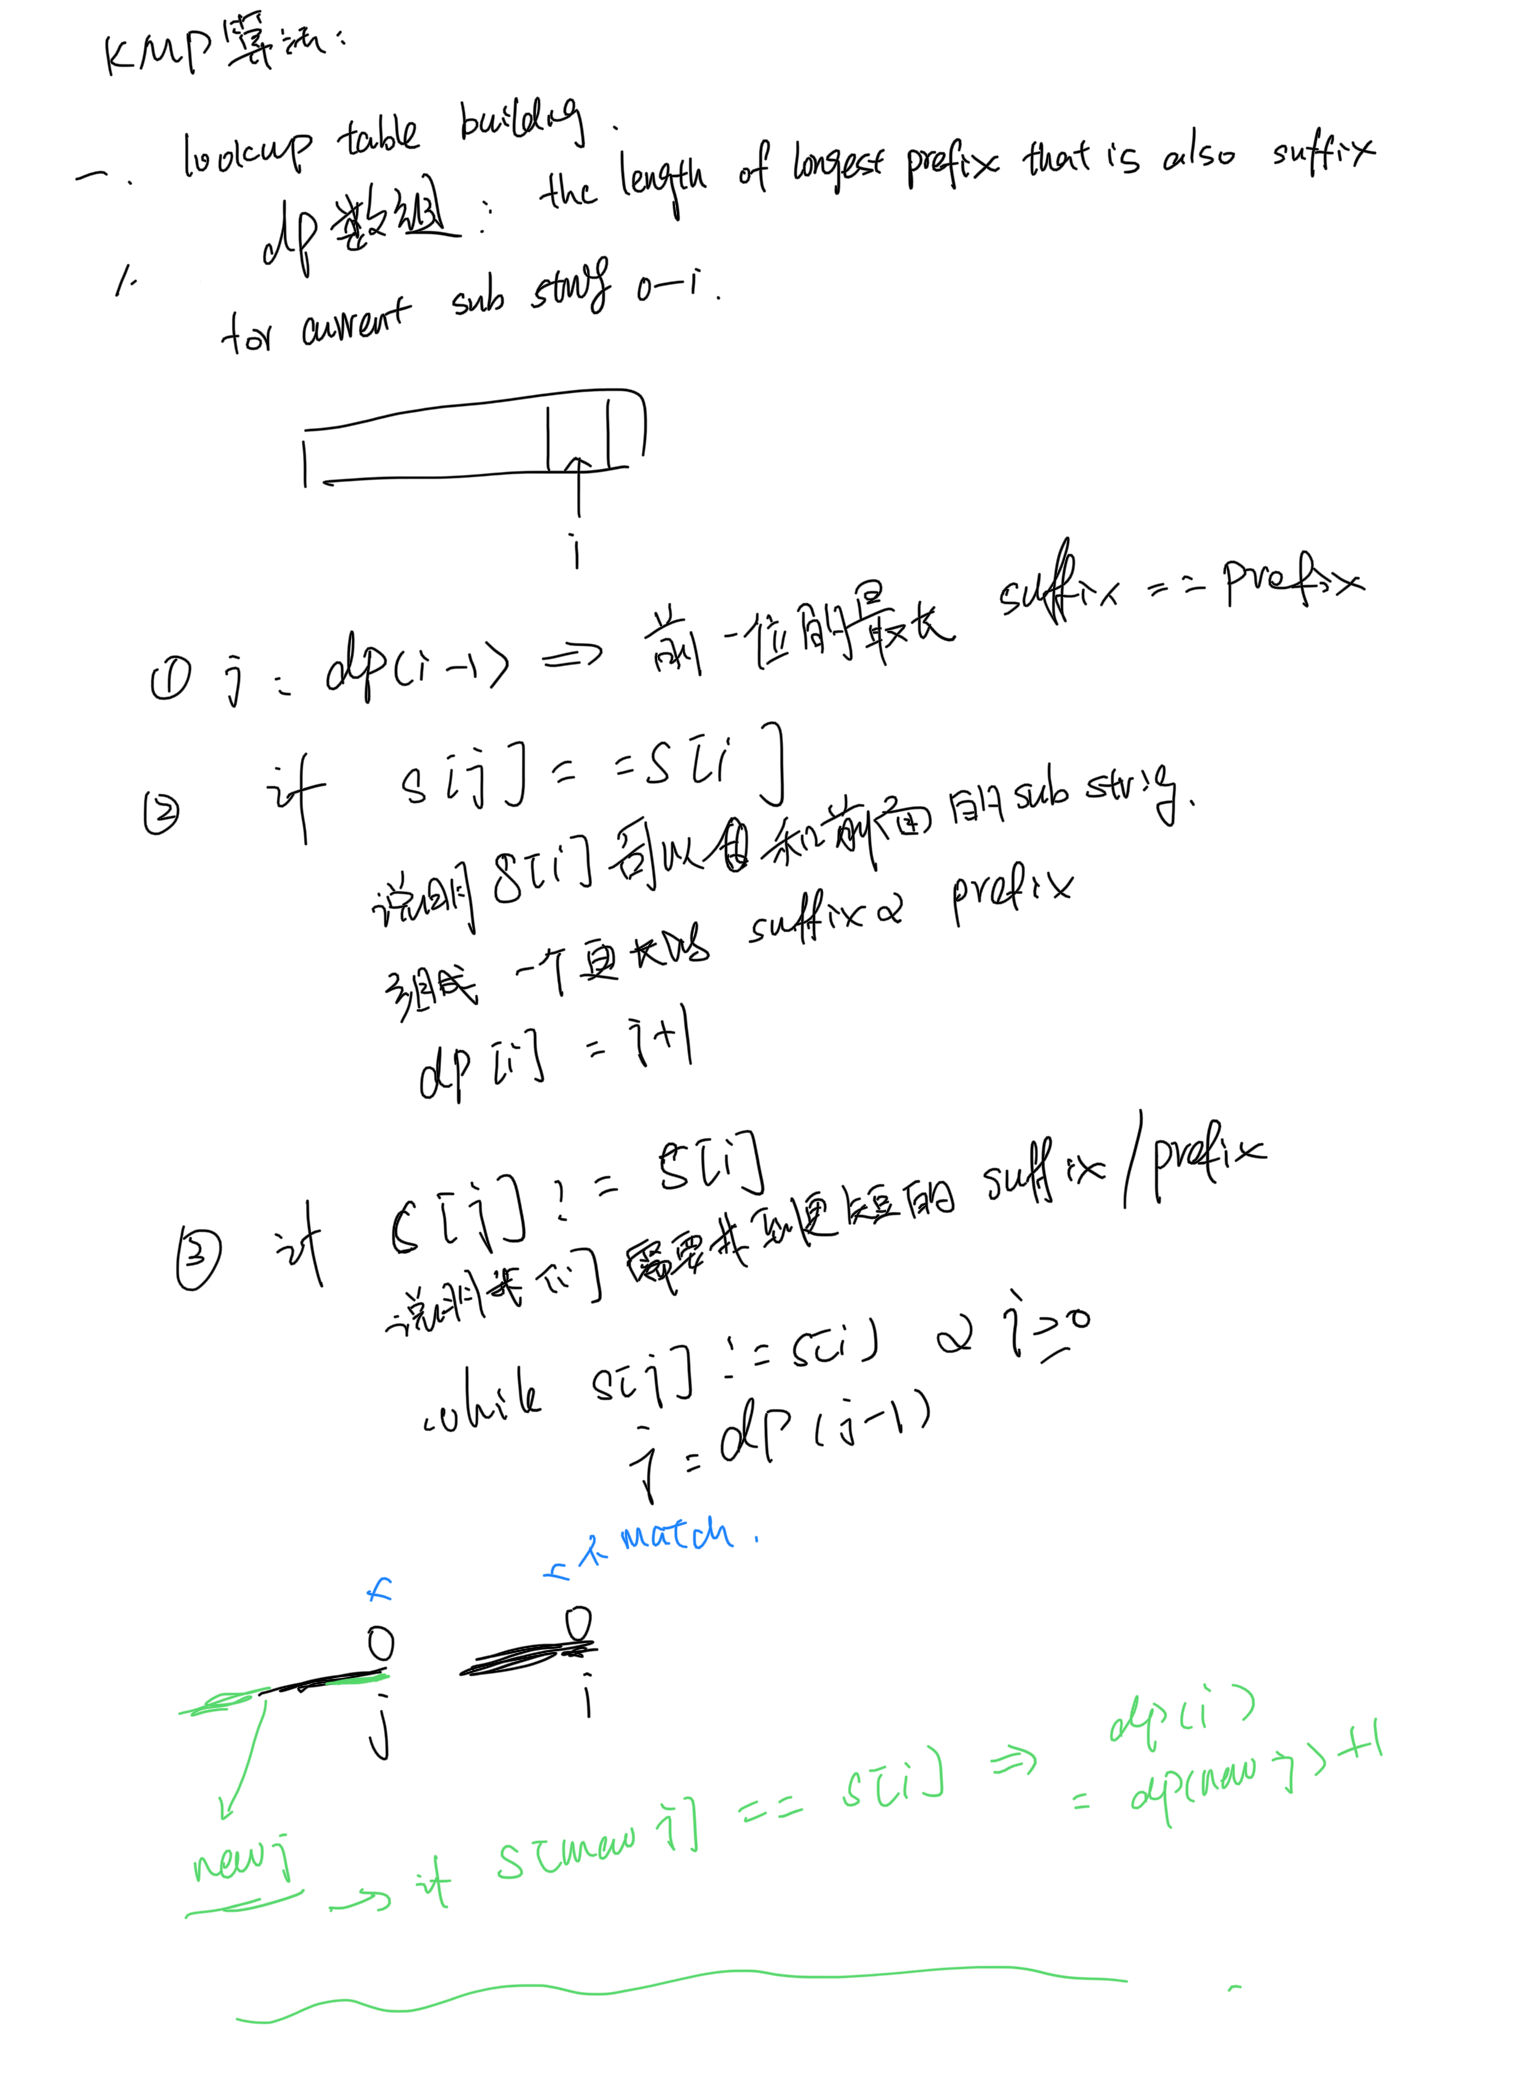 KMP算法:
一. lookup table building.
1. dp数组: the length of longest prefix that is also suffix
for current sub string 0-i.
i
① j = dp(i-1) => 前一位的最长 suffix == prefix
② if s[j] == s[i]
说明 s[i] 可以 和前面的 sub string.
组成一个更长的 suffix & prefix
dp[i] = j+1
③ if s[j] != s[i]
说明 [i] 需要 更短的 suffix/prefix
while s[j] != s[i] & j≥0
j = dp(j-1)
不match.
j
i
new j -> if s[new j] == s[i] => dp(i)
= dp(new j)+1